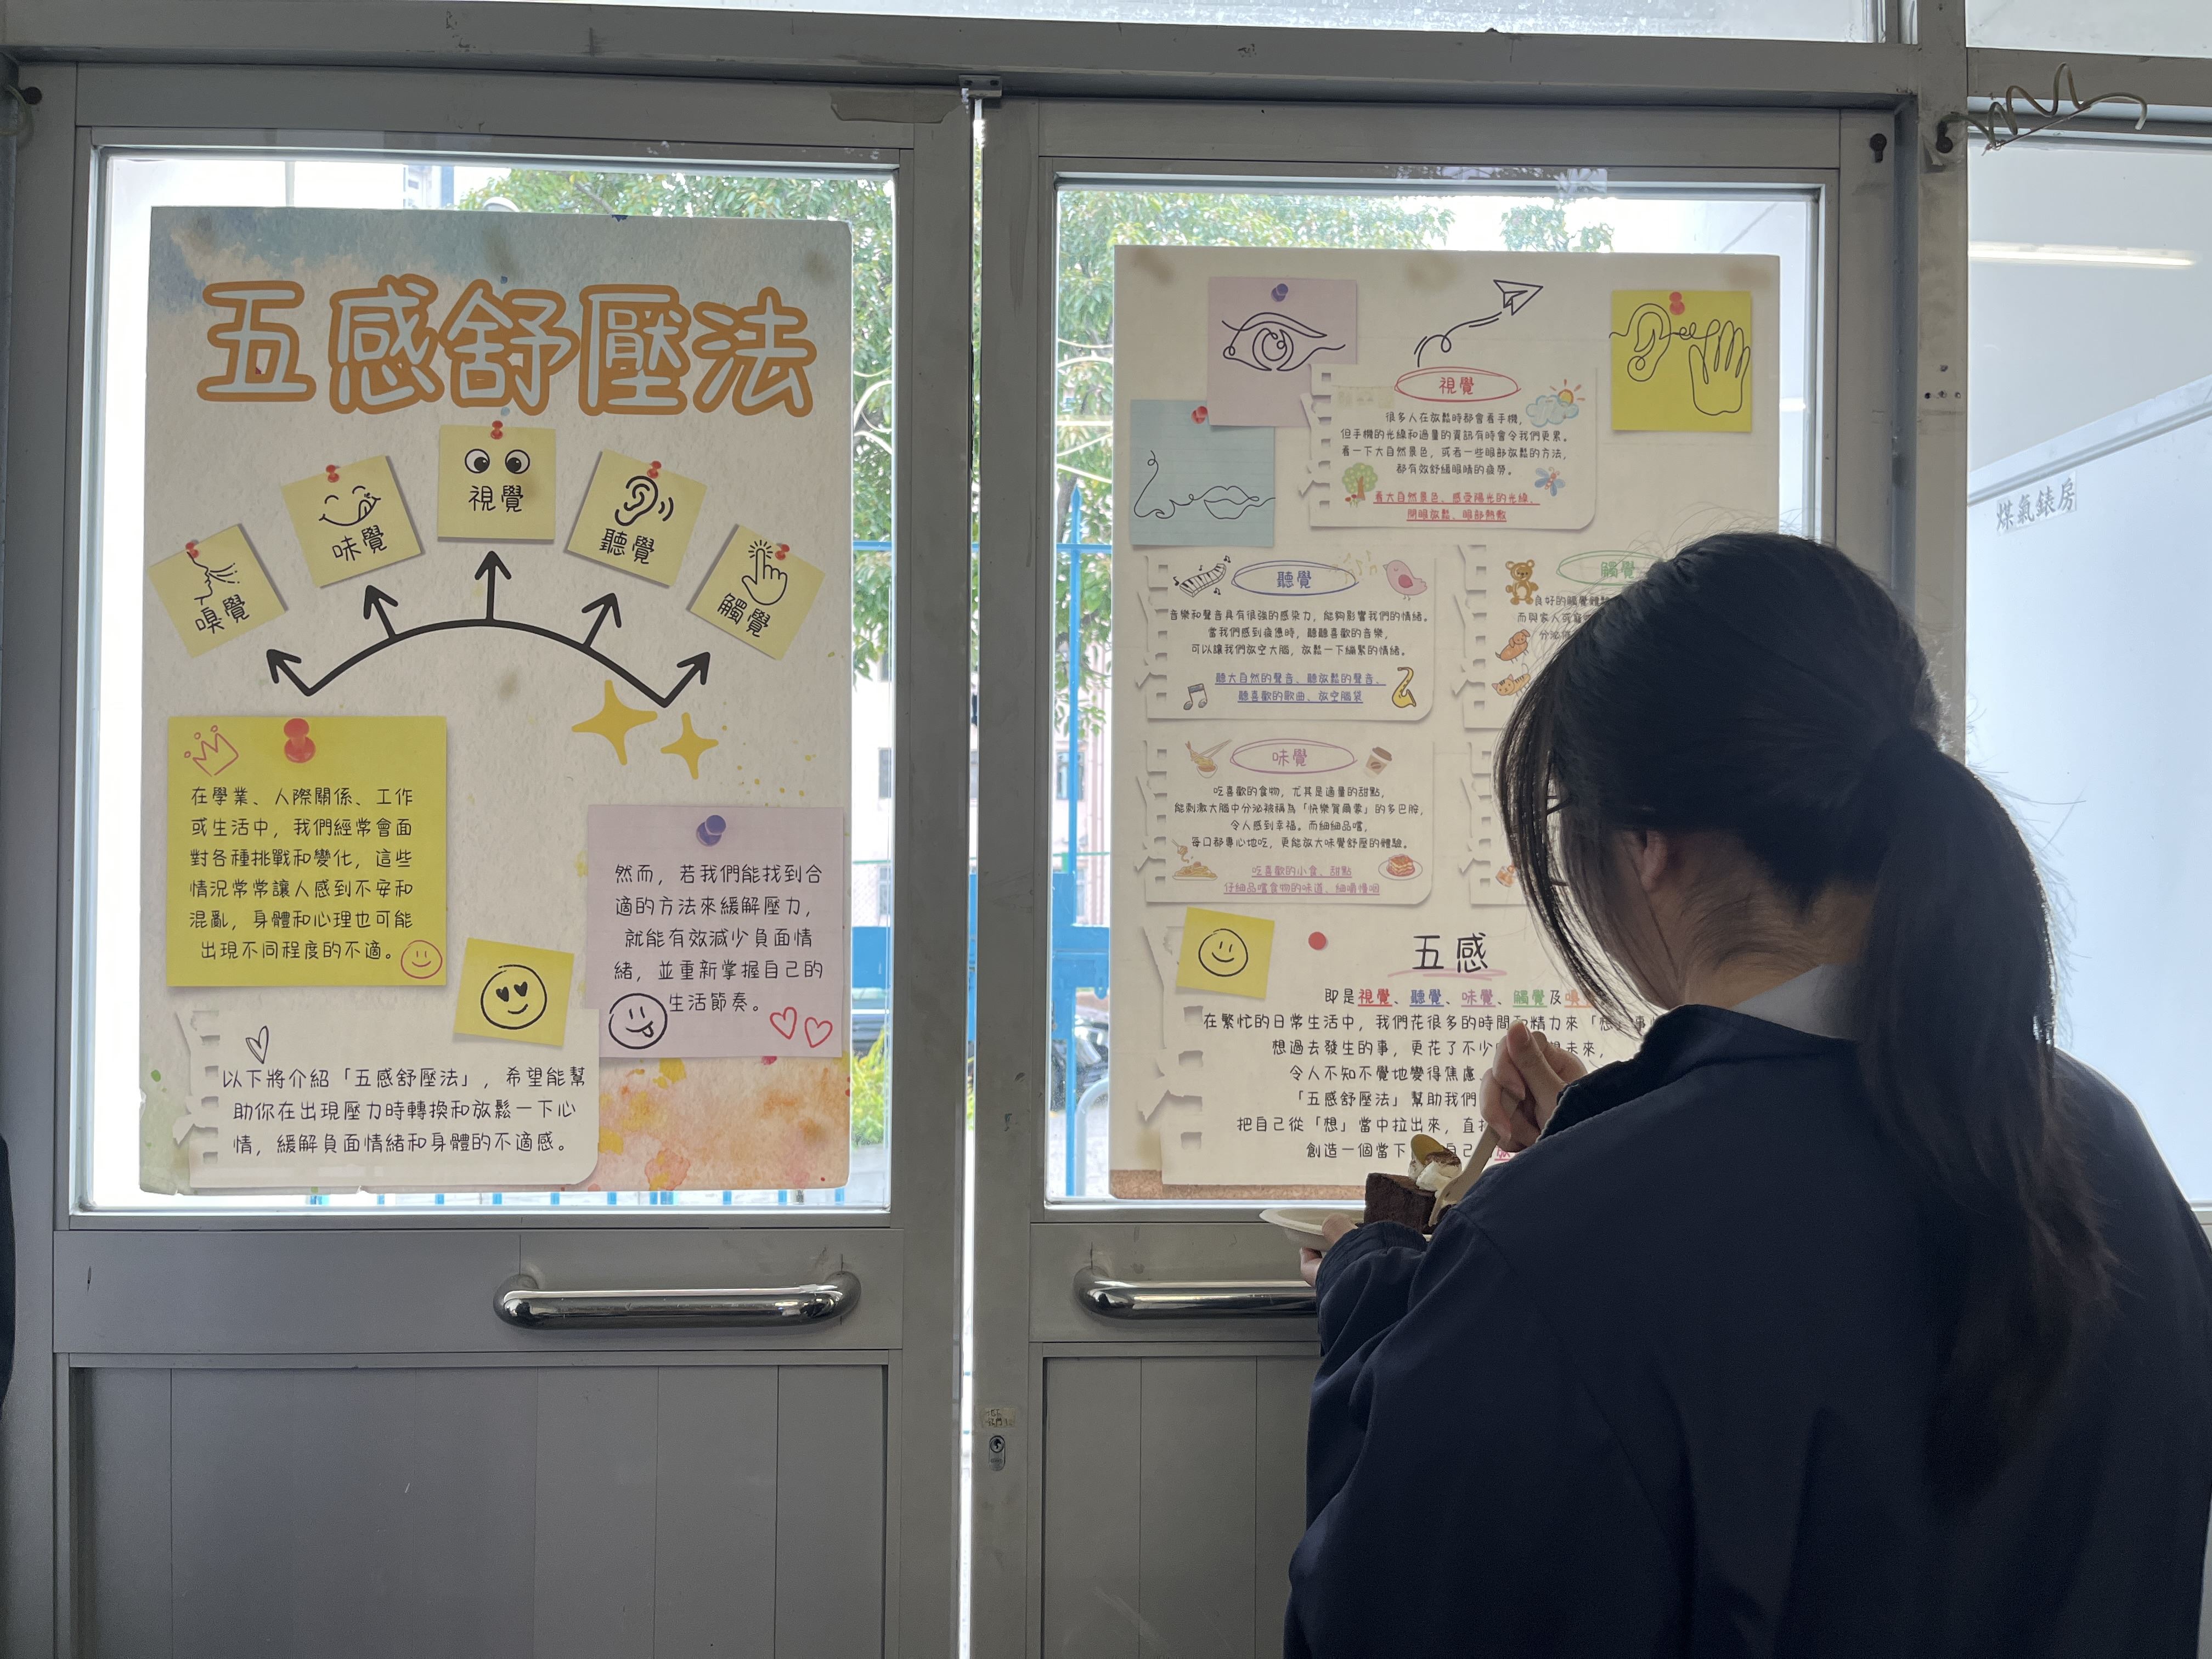 五感舒壓法
嗅覺
味覺
視覺
聽覺
觸覺
在學業、人際關係、工作
或生活中，我們經常會面
對各種挑戰和變化，這些
情況常常讓人感到不安和
混亂，身體和心理也可能
出現不同程度的不適。
然而，若我們能找到合
適的方法來緩解壓力，
就能有效減少負面情
緒，並重新掌握自己的
生活節奏。
以下將介紹「五感舒壓法」，希望能幫
助你在出現壓力時轉換和放鬆一下心
情，緩解負面情緒和身體的不適感。
視覺
很多人在放鬆時都會看手機，
但手機的光線和過量的資訊有時會令我們更累。
看一下大自然景色，或者一些眼部放鬆的方法，
都有效舒緩眼睛的疲勞。
看大自然景色、感受陽光的光線、
閉眼放鬆、眼部熱敷
聽覺
音樂和聲音具有很強的感染力，能夠影響我們的情緒。
當我們感到疲憊時，聽聽喜歡的音樂，
可以讓我們放空大腦，放鬆一下繃緊的情緒。
聽大自然的聲音、聽放鬆的聲音、
聽喜歡的歌曲、放空腦袋
觸覺
良好的觸覺體驗
而與家人或寵
分泌
味覺
吃喜歡的食物，尤其是適量的甜點，
能刺激大腦中分泌被稱為「快樂賀爾蒙」的多巴胺，
令人感到幸福。而細細品嚐，
每口都專心地吃，更能放大味覺舒壓的體驗。
吃喜歡的小食、甜點
仔細品嚐食物的味道、細嚼慢咽
五感
即是視覺、聽覺、味覺、觸覺及嗅
在繁忙的日常生活中，我們花很多的時間和精力來「想」事
想過去發生的事，更花了不少 想未來，
令人不知不覺地變得焦慮
「五感舒壓法」幫助我們
把自己從「想」當中拉出來，直
創造一個當下 自己
煤氣錶房